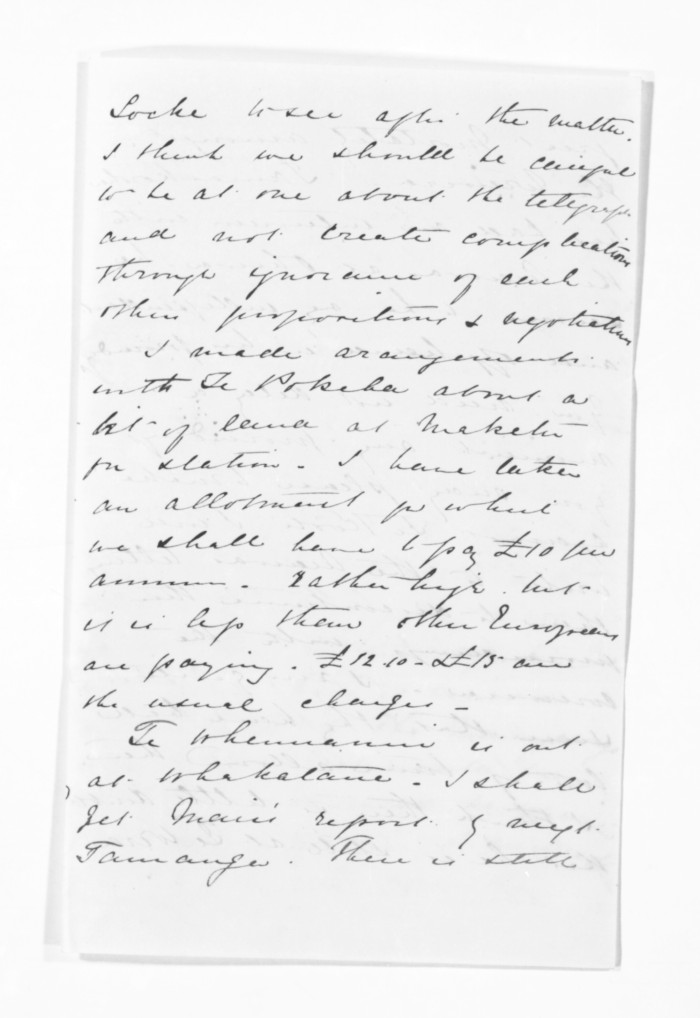 Locke to see after the matter.
I think we should be careful
to be at one about the telegraph
and not create complications
through ignorance of each
others propositions & negotiations
I made arangements
with Te Pokeha about a
bit of land at Maketu
for station - I have taken
an allotment for which
we shall have to pay £10 per
annum - rather high but
it is less than other Europeans
are paying. £12.10 - & £15 are
the usual charges -
Te is out
at Whakatane - I shall
get Mair's report by next
Tauranga. There is still